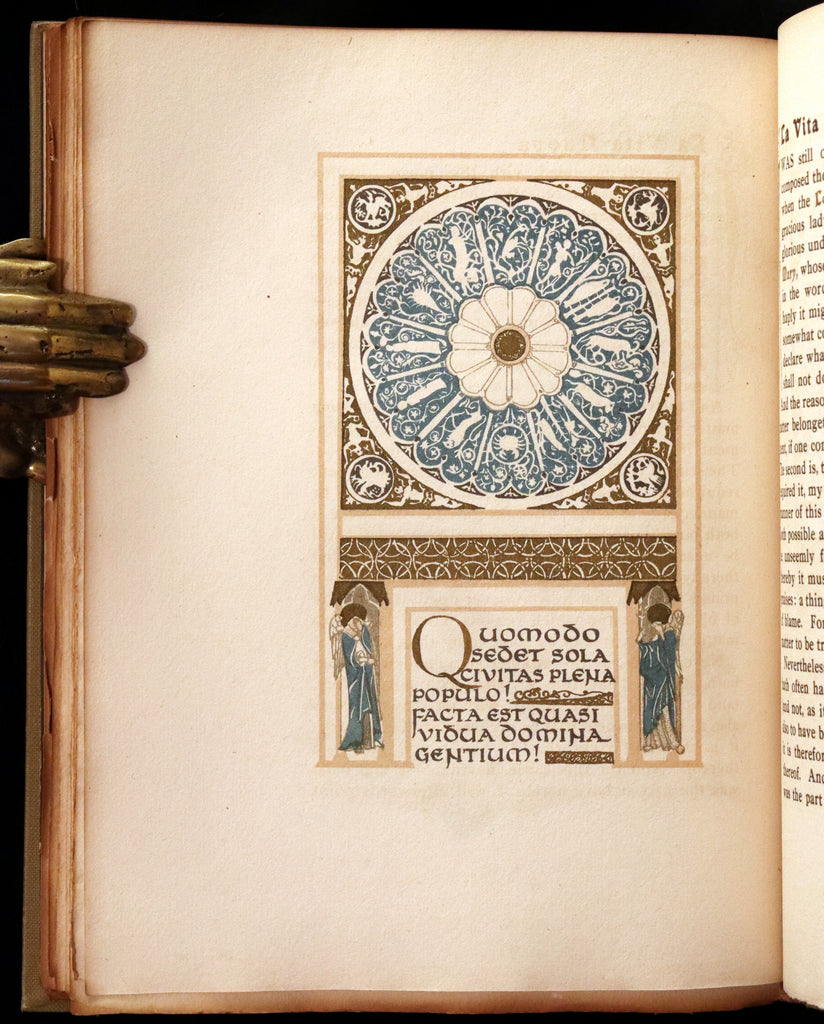 QUOMODO
SEDET SOLA
CIVITAS PLENA
POPULO!
FACTA EST QUASI
VIDUA DOMINA
GENTIUM!
La Vita
WAS still
composed the
when the
gracious lad
glorious und
Mary, whose
in the word
haply it mig
somewhat co
declare wha
shall not do
And the reaso
belonget
if one con
second is, t
my
of this
possible a
unseemly f
it mus
: a thin
blame. For
to be tr
Nevertheless
often ha
not, as i
also to have b
is therefor
thereof. And
was the part